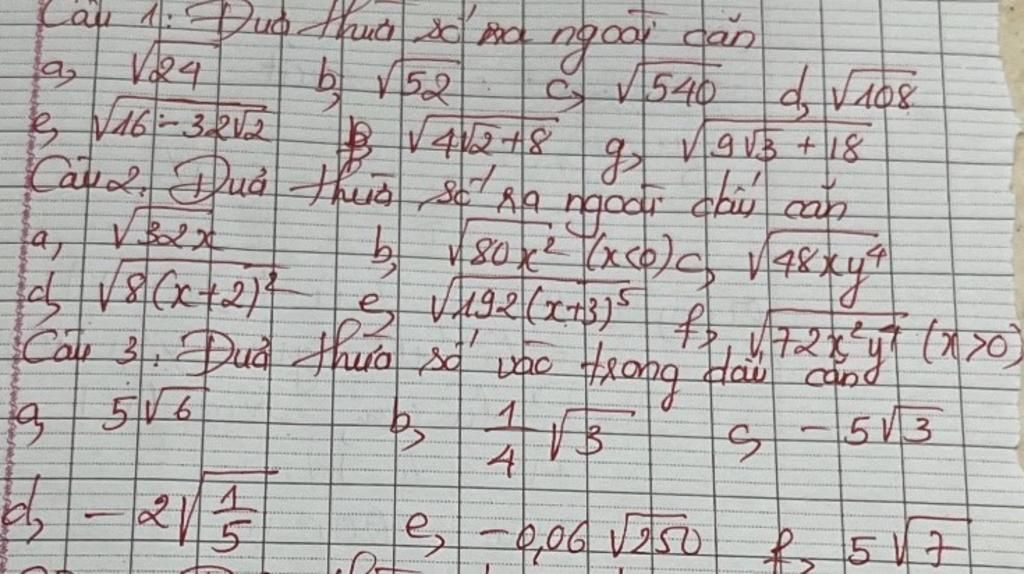 Câu 1: Đưa thừa số ra ngoài căn
a, √24 b, √52 c, √540 d, √108
e, √(16-32√2) f, √(4√2+8) g, √(9√3+18)
Câu 2. Đưa thừa số ra ngoài dấu căn
a, √32x b, √80x² (x<0) c, √48xy⁴
d, √8(x+2)² e, √192(x+3)⁵ f, √72x²y⁴ (x>0)
Câu 3. Đưa thừa số vào trong dấu căn
a, 5√6 b, 1/4 √3 c, -5√3
d, -2√(1/5) e, -0,06√250 f, 5√7